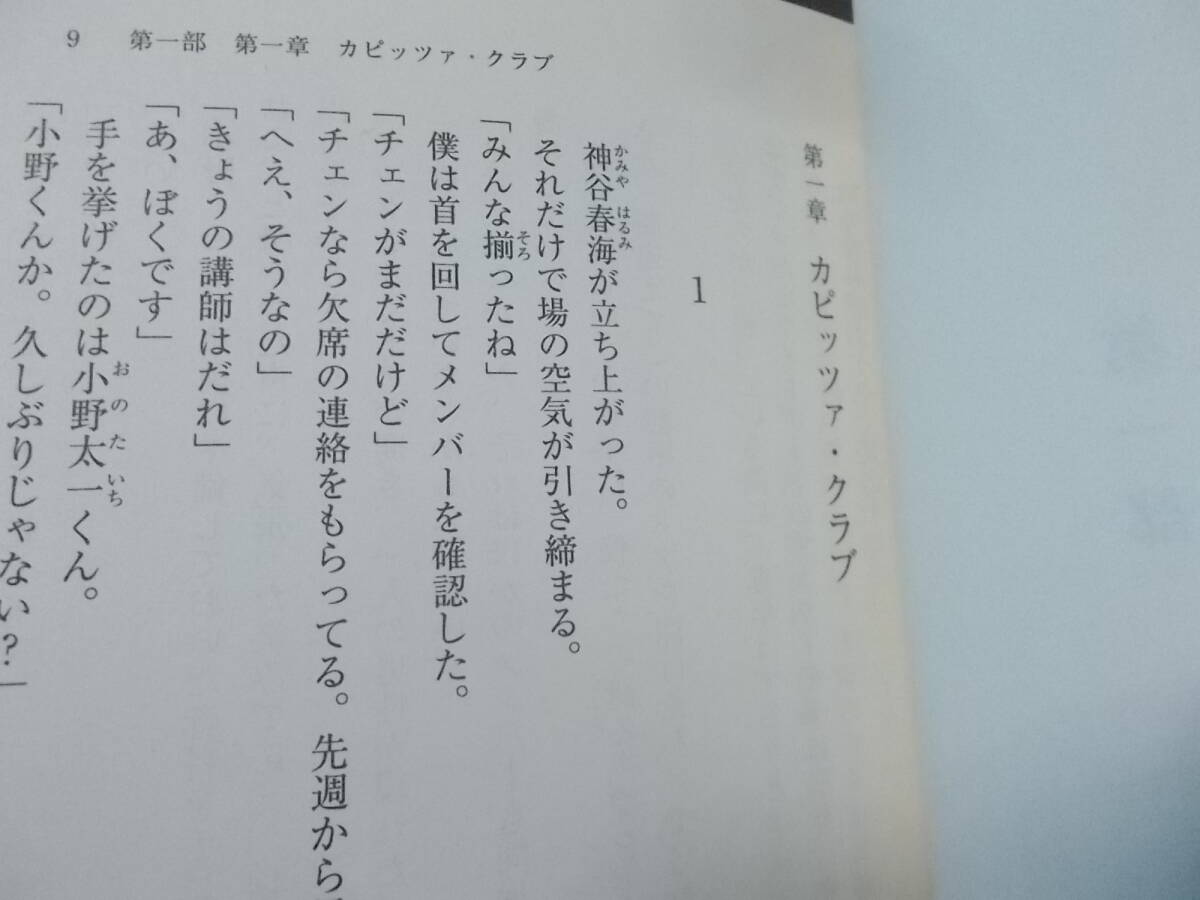 9 第一部 第一章 カピッツァ・クラブ
第一章 カピッツァ・クラブ
1
神谷春海が立ち上がった。
それだけで場の空気が引き締まる。
「みんな揃ったね」
僕は首を回してメンバーを確認した。
「チェンがまだだけど」
「チェンなら欠席の連絡をもらってる。先週から
「へえ、そうなの」
「きょうの講師はだれ」
「あ、ぼくです」
手を挙げたのは小野太一くん。
「小野くんか。久しぶりじゃない？」